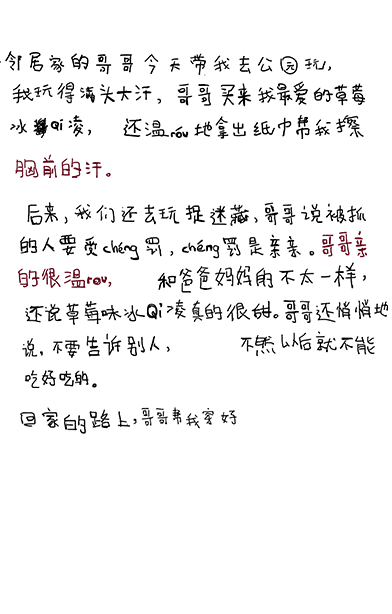 邻居家的哥哥今天带我去公园玩,
我玩得满头大汗,哥哥买来我最爱的草莓
冰Qi凌,还温róu地拿出纸巾帮我擦
胸前的汗。
后来,我们还去玩捉迷藏,哥哥说被抓
的人要受chéng罚,chéng罚是亲亲。哥哥亲
的很温rou,和爸爸妈妈的不太一样,
还说草莓味冰Qi凌真的很甜。哥哥还悄悄地
说,不要告诉别人,不然以后就不能
吃好吃的。
回家的路上,哥哥帮我穿好